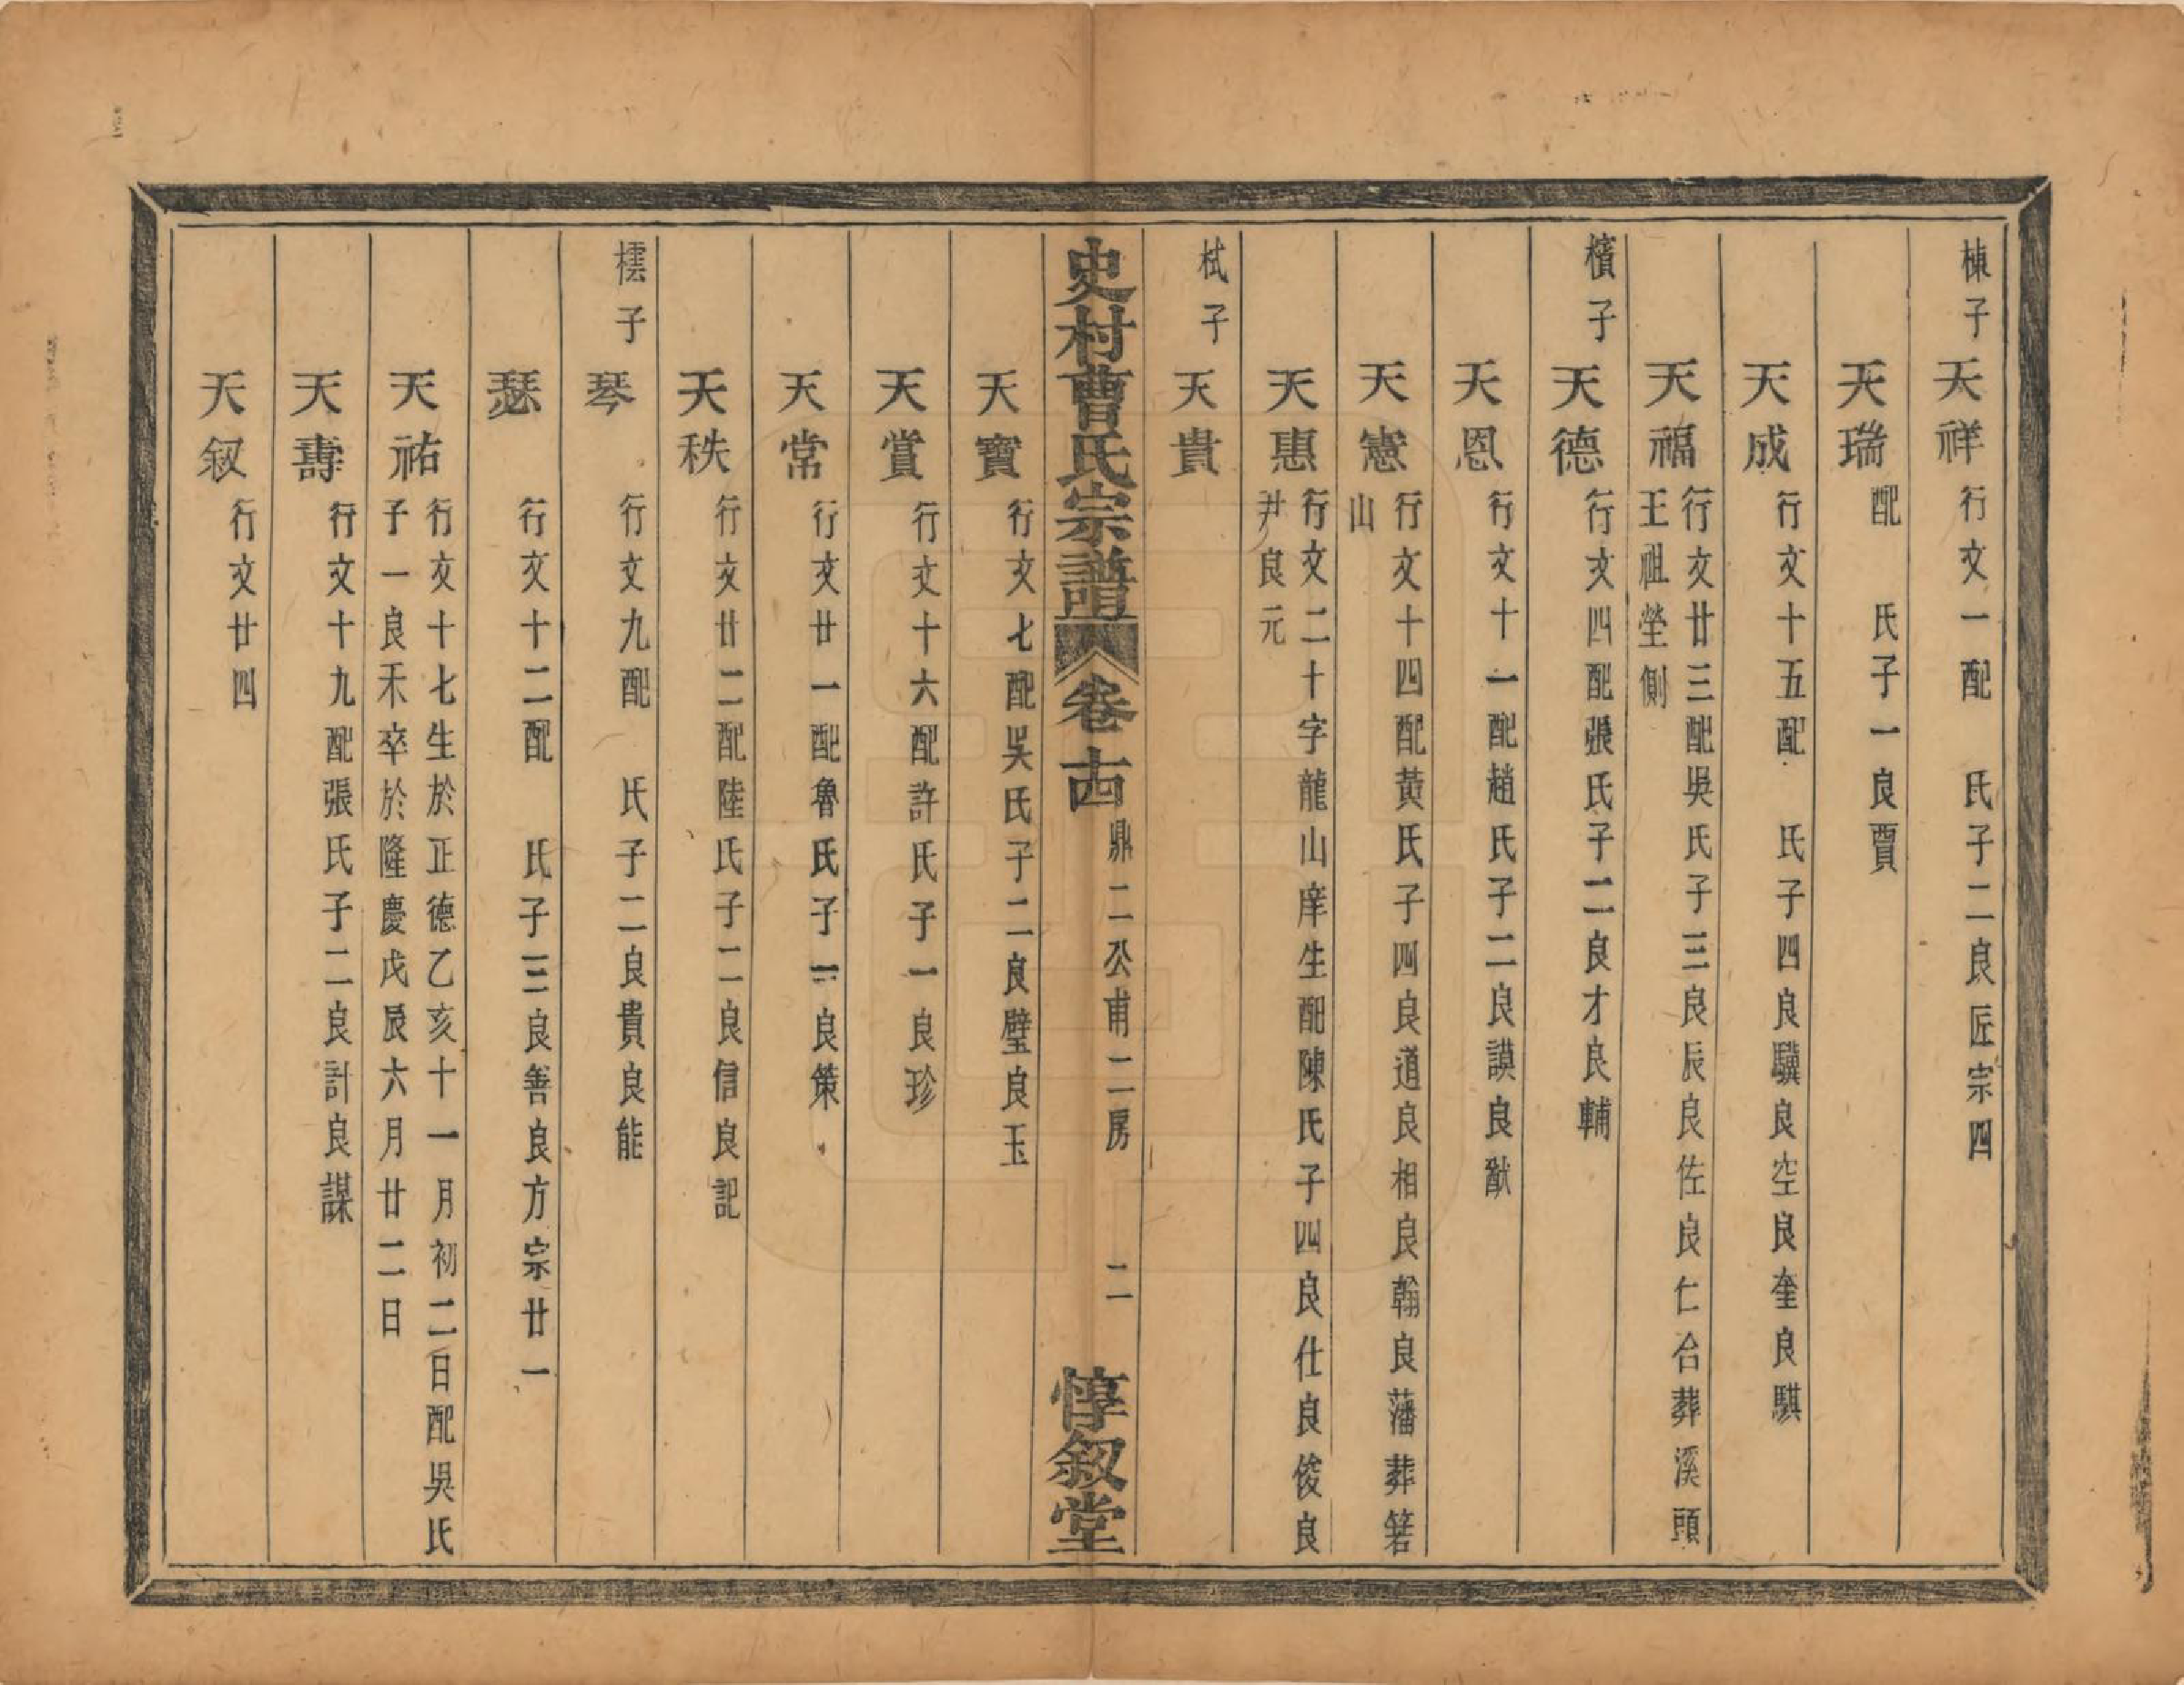 棟子
天祥 行文一配 氏子二良匠宗四
天瑞 配 氏子一良賈
天成 行文十五配 氏子四良驥良空良奎良騏
天福 行文廿三配吳氏子三良辰良佐良仁合葬溪頭
王祖塋側
檳子
天德 行文四配張氏子二良才良輔
天恩 行文十一配趙氏子二良謨良猷
天憲 行文十四配黃氏子四良道良相良翰良藩葬箬
山
天惠 行文二十字龍山庠生配陳氏子四良仕良俊良
尹良元
栻子
天貴
史村曹氏宗譜 卷古 鼎二公甫二房 二 惇敘堂
天寶 行文七配吳氏子二良璧良玉
天賞 行文十六配許氏子一良珍
天常 行文廿一配魯氏子一良策
天秩 行文廿二配陸氏子二良信良記
橒子
琴 行文九配 氏子二良貴良能
瑟 行文十二配 氏子三良善良方宗廿一
天祐 行文十七生於正德乙亥十一月初二日配吳氏
子一良禾卒於隆慶戊辰六月廿二日
天壽 行文十九配張氏子二良計良謀
天叙 行文廿四